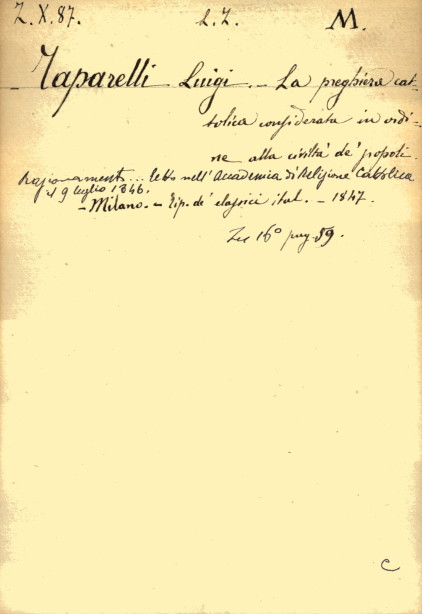 Z.X.87. L.Z. M.
Taparelli Luigi. - La preghiera cat-
tolica considerata in ordi-
ne alla civiltà de' popoli.
Ragionamento... letto nell'Accademia di Religione Cattolica
il 9 luglio 1846.
- Milano. - Tip. de' classici ital. - 1847.
In 16° pag. 59.
C